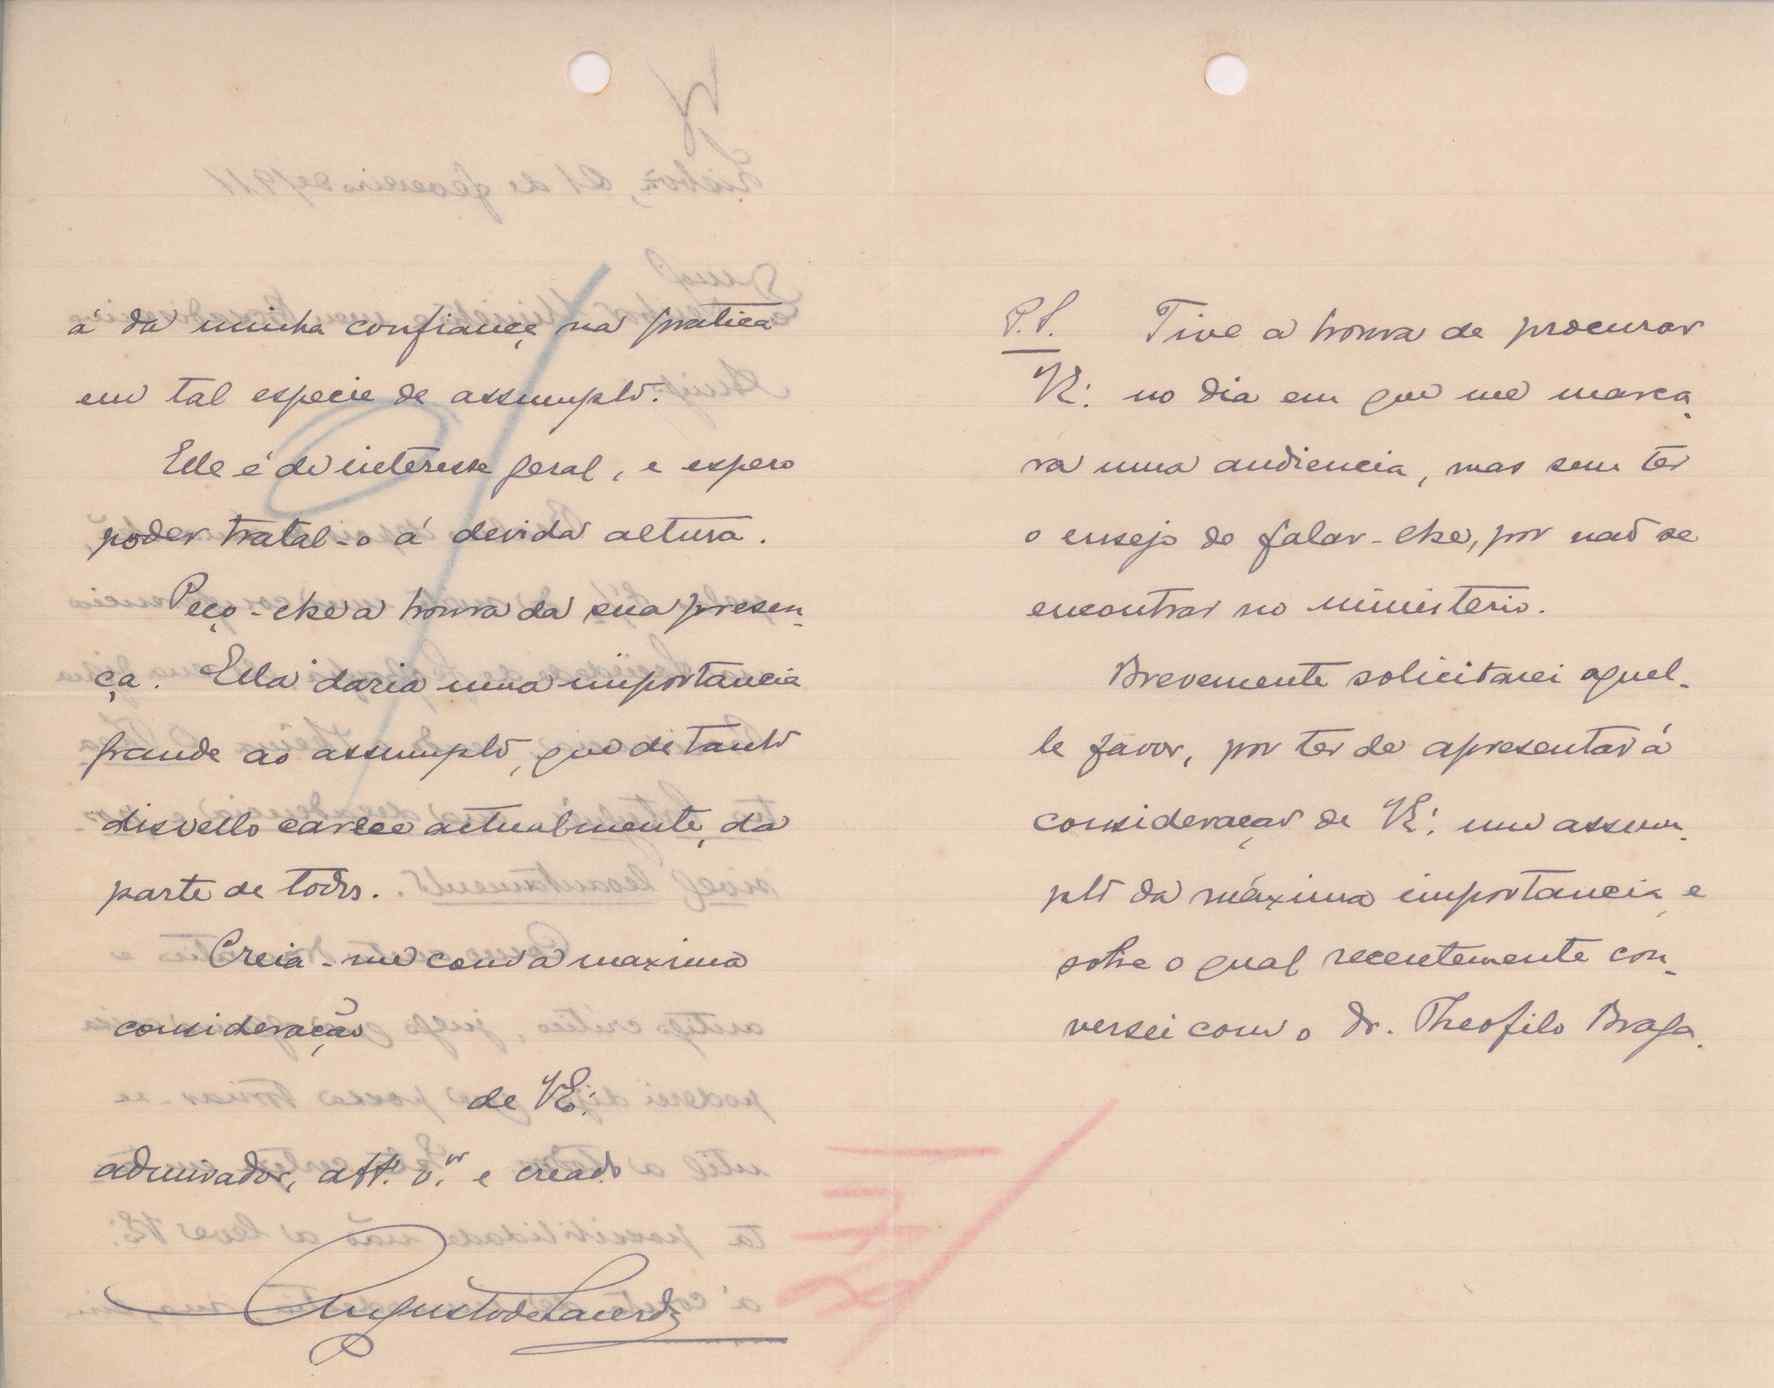 á da minha confiança na pratica
em tal especie de assumpto.
Elle é de interesse geral, e espero
poder tratal-o á devida altura.
Peço-lhe a honra da sua presen-
ça. Ella daria uma importancia
grande ao assumpto, que de tanto
disvello carece actualmente, da
parte de todos.
Creia-me com a maxima
consideração
de VE.
admirador, att.º v.or e creado
Augusto de Lacerda
P.S. Tive a honra de procurar
VE. no dia em que me marca-
ra uma audiencia, mas sem ter
o ensejo de falar-lhe, por não se
encontrar no ministerio.
Brevemente solicitarei aquel-
le favor, por ter de apresentar á
consideraçao de VE. um assum-
pto da máxima importancia, e
sobre o qual recentemente con-
versei com o dr. Theofilo Braga.